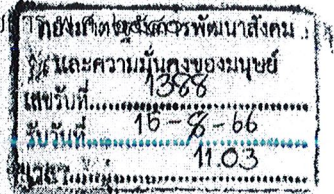 พัฒนาสังคม
และความมั่นคงของมนุษย์
เลขรับที่ 1388
รับวันที่ 15-8-66
เวลา 11.03